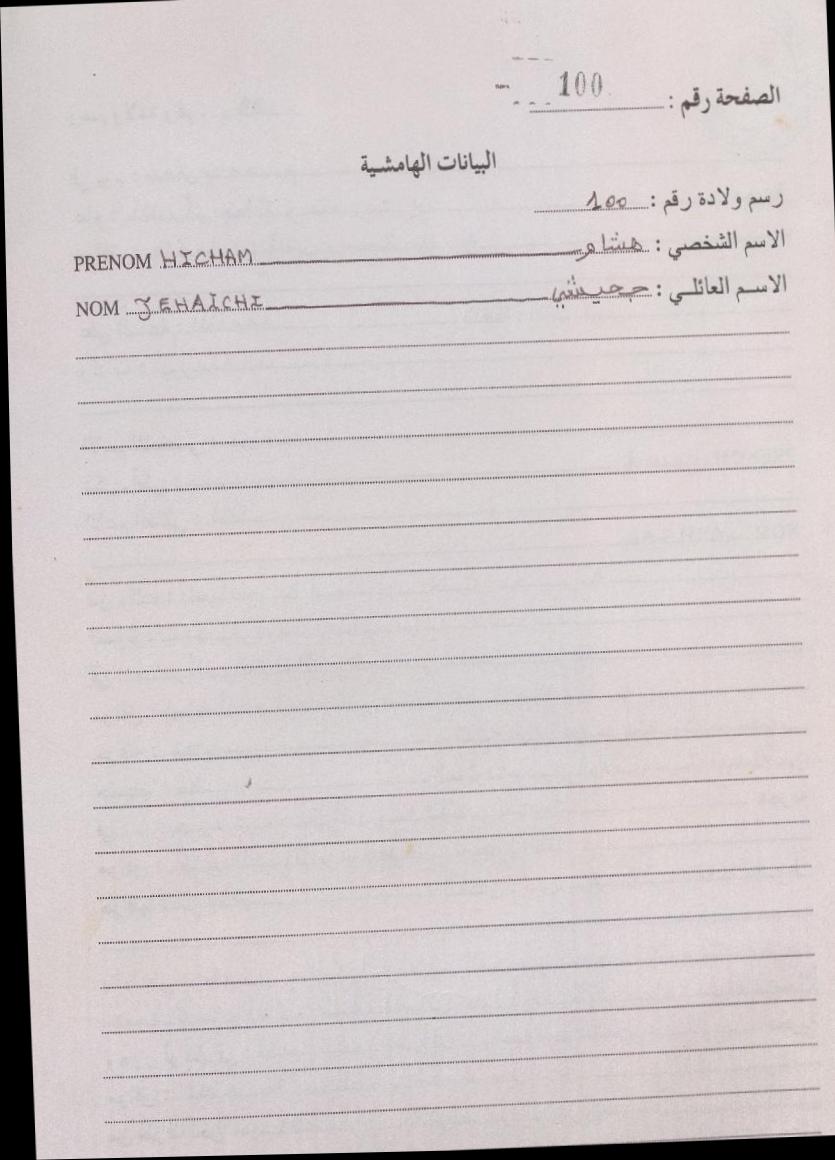 الصفحة رقم : 100
البيانات الهامشية
رسم ولادة رقم : 100
الاسم الشخصي : هشام PRENOM HICHAM
الاسم العائلي : جحيشي NOM JEHAÏCHI